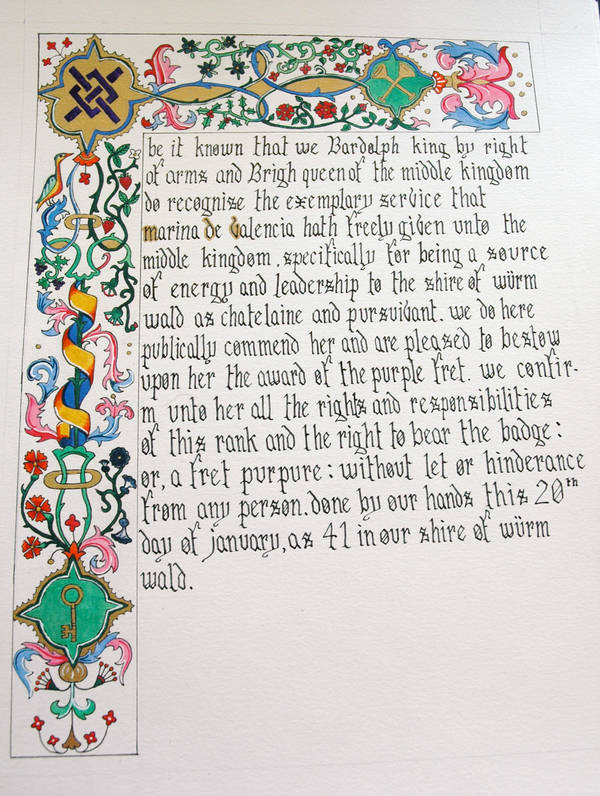 be it known that we Bardolph king by right
of arms and Brigh queen of the middle kingdom
do recognize the exemplary service that
marina de valencia hath freely given unto the
middle kingdom, specifically for being a source
of energy and leadership to the shire of würm
wald as chatelaine and pursuivant. we do here
publically commend her and are pleased to bestow
upon her the award of the purple fret. we confir-
m unto her all the rights and responsibilities
of this rank and the right to bear the badge:
or, a fret purpure: without let or hinderance
from any person. done by our hands this 20th
day of january, as 41 in our shire of würm
wald.